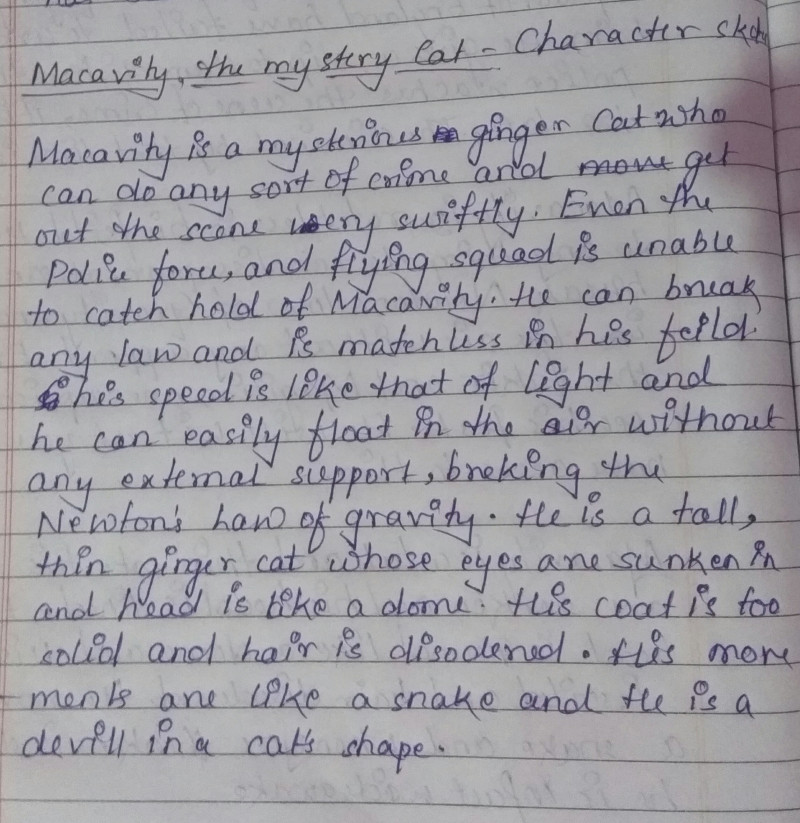 Macavity, the mystery Cat - Character sket
Macavity is a mysterious ginger Cat who
can do any sort of crime and move get
out the scene very swiftly. Even the
Police force, and flying squad is unable
to catch hold of Macavity. He can break
any law and is matchless in his feild.
his speed is like that of light and
he can easily float in the air without
any external support, breking the
Newton's Law of gravity. He is a tall,
thin ginger cat whose eyes are sunken in
and head is like a dome. His coat is too
solid and hair is disodered. His move
ments are like a snake and He is a
devill in a cat's shape.